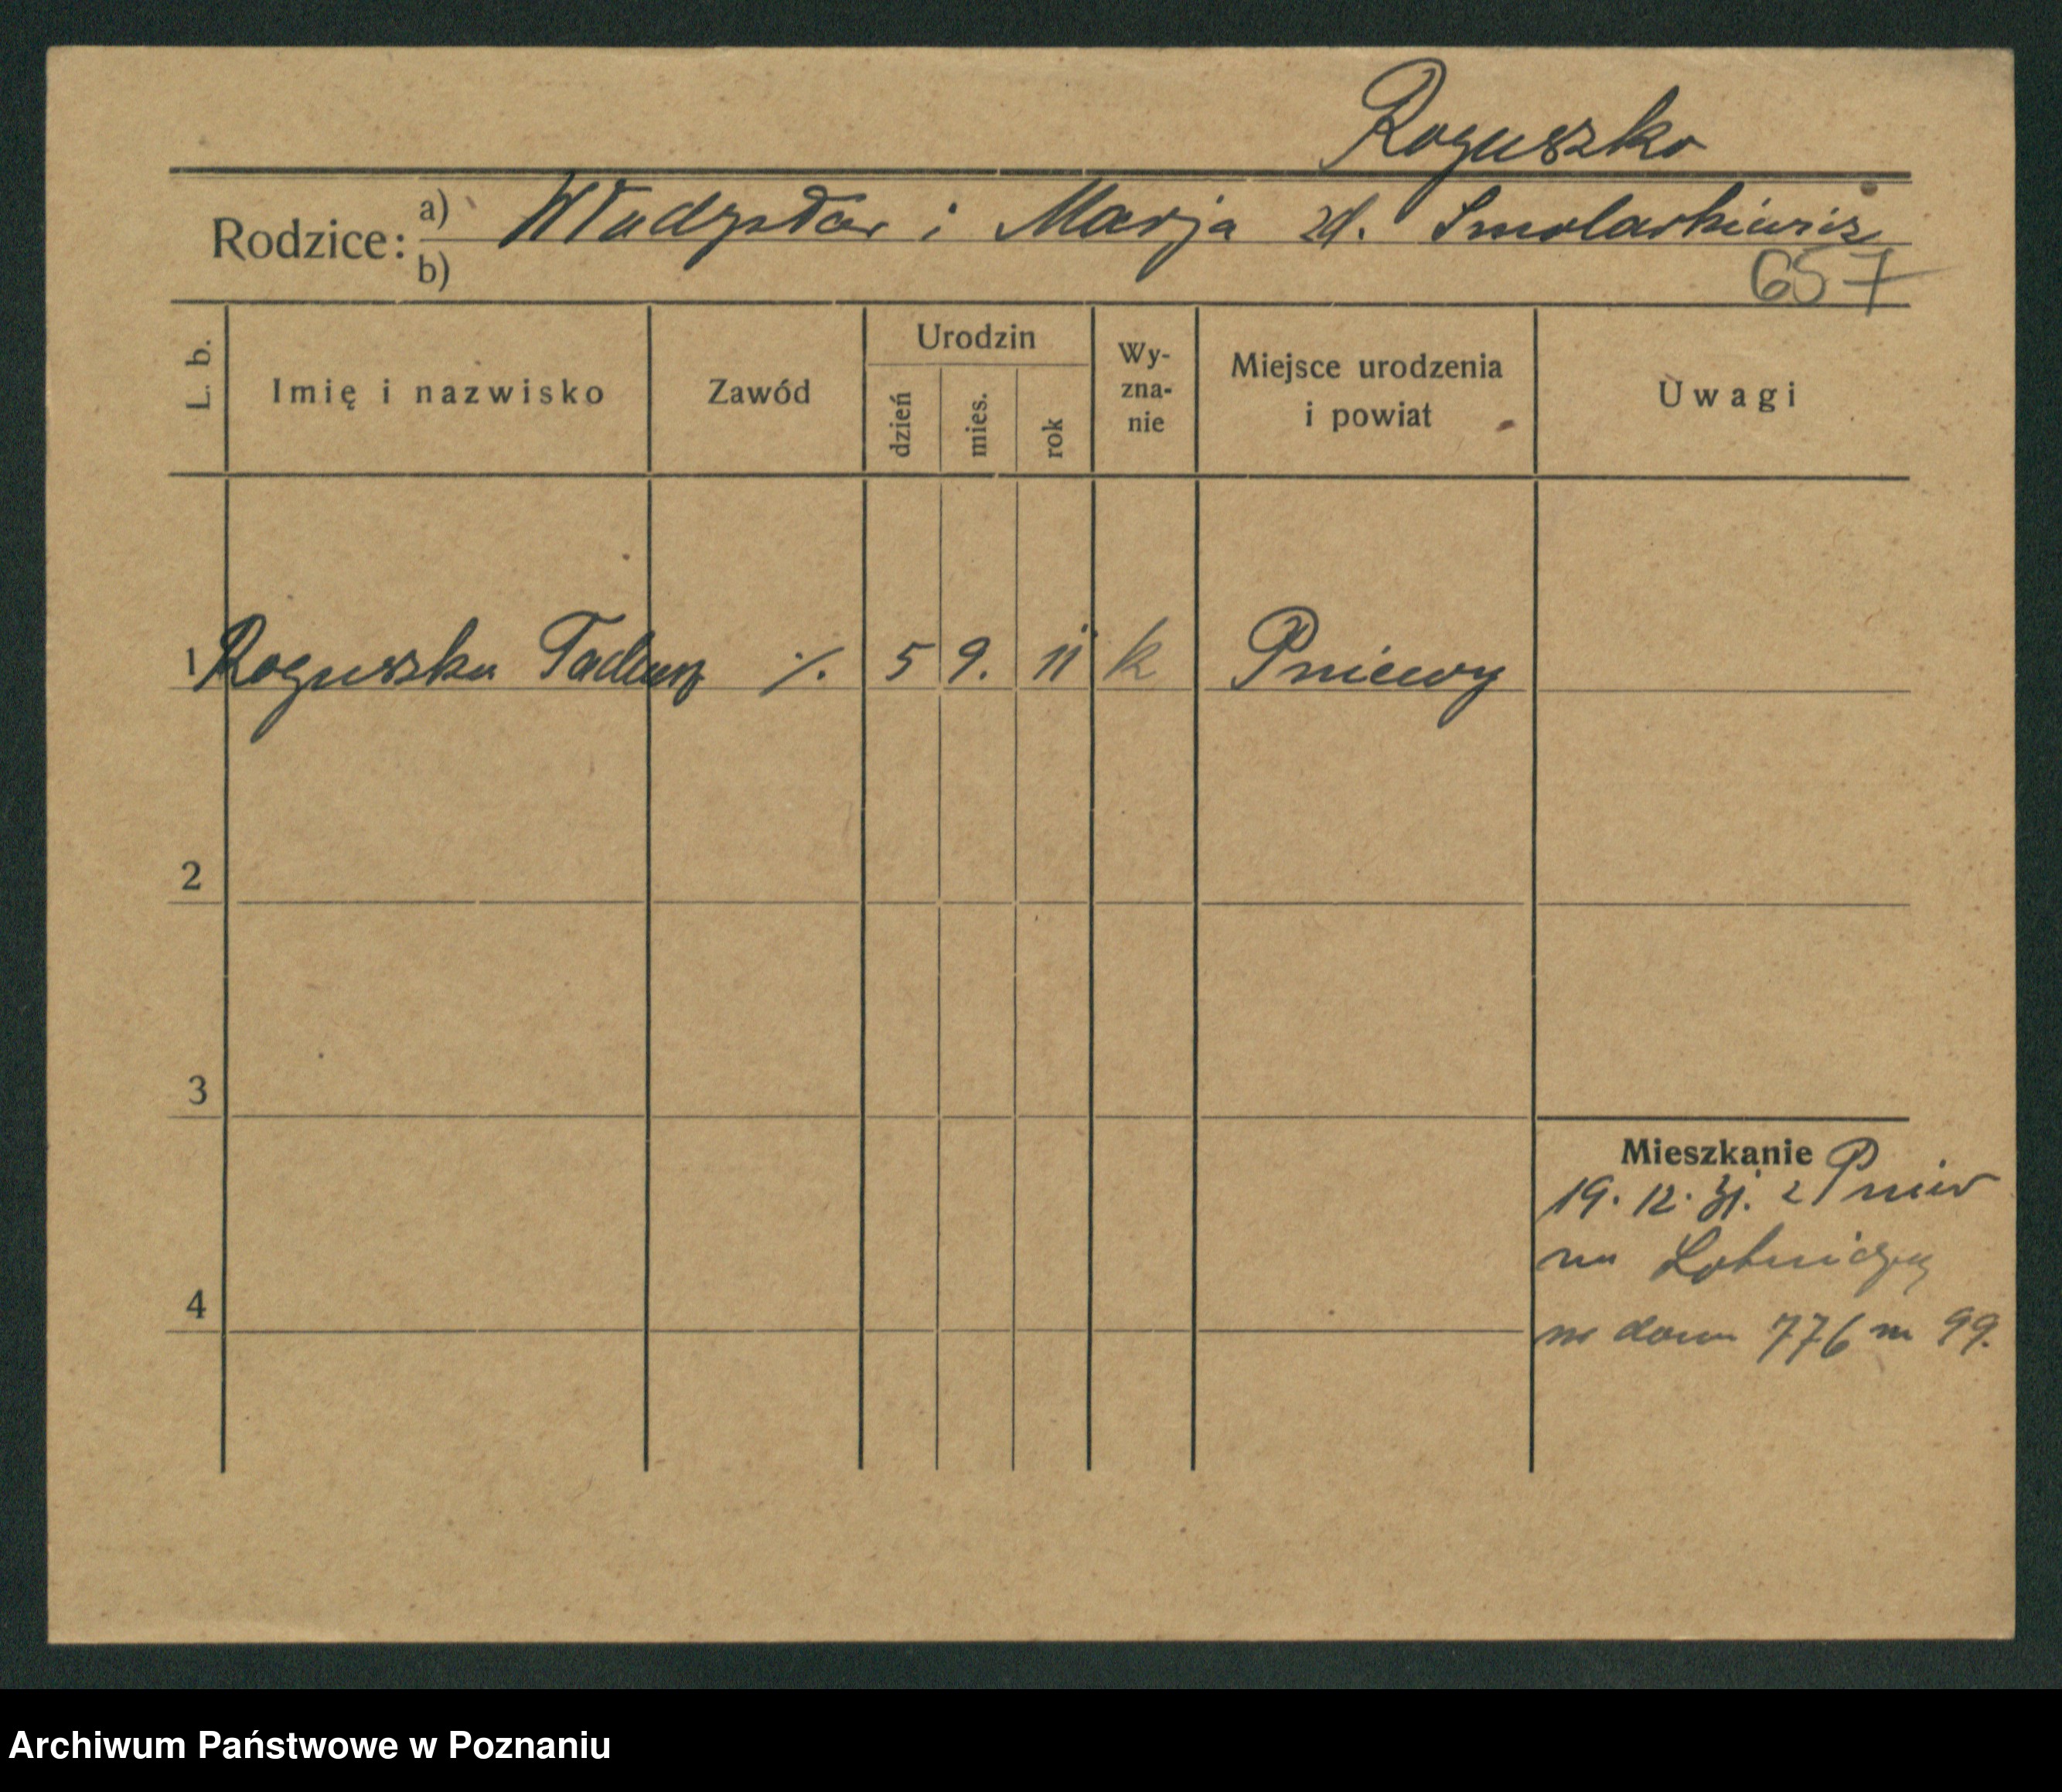 Roguszko
Rodzice: a) Władysław i Marja zd. Smolarkiewicz
b)
657
L. b.
Imię i nazwisko
Zawód
Urodzin
dzień
mies.
rok
Wy-
zna-
nie
Miejsce urodzenia
i powiat
Uwagi
1 Roguszko Tadeusz ·/. 5 9. 11 k Pniewy
2
3
4
Mieszkanie
19. 12. 31. z Pniew
na
dom 776 m 99.
Archiwum Państwowe w Poznaniu